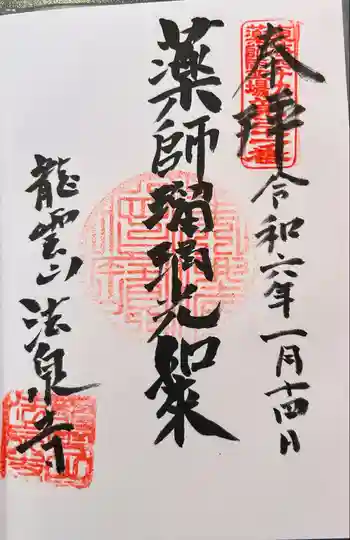 奉拝
令和六年一月十四日
薬師瑠璃光如来
龍雲山法泉寺